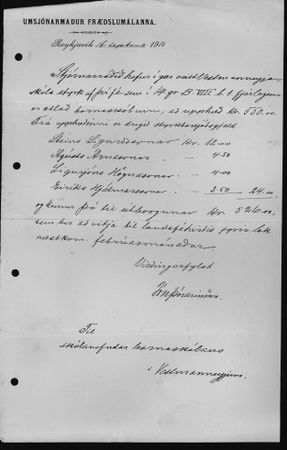 UMSJÓNARMAÐUR FRÆÐSLUMÁLANNA.
Reykjavík 16. september 1912
Stjórnarráðið hefir í gær veitt Vestmannaeyja-
skóla styrk af fé því sem í 14. gr. B. VIII. b. 1 fjárlaganna
er ætlað barnaskólum, að upphæð kr. 550.00.
Frá upphæðinni er dregið styrktarsjóðsgjald
Steins Sigurðssonar kr. 12.00
Ágústs Árnasonar — 4.50
Sigurjóns Högnasonar — 4.00
Eiríks Hjálmarssonar — 3.50 — 24.00
og kemur því til útborgunar kr. 526.00,
sem ber að vitja til landsféhirðis fyrir lok
næstkom. febrúarmánaðar.
Virðingarfyllst
Jón Þórarinsson.
Til
skólanefndar barnaskólans
í Vestmannaeyjum.